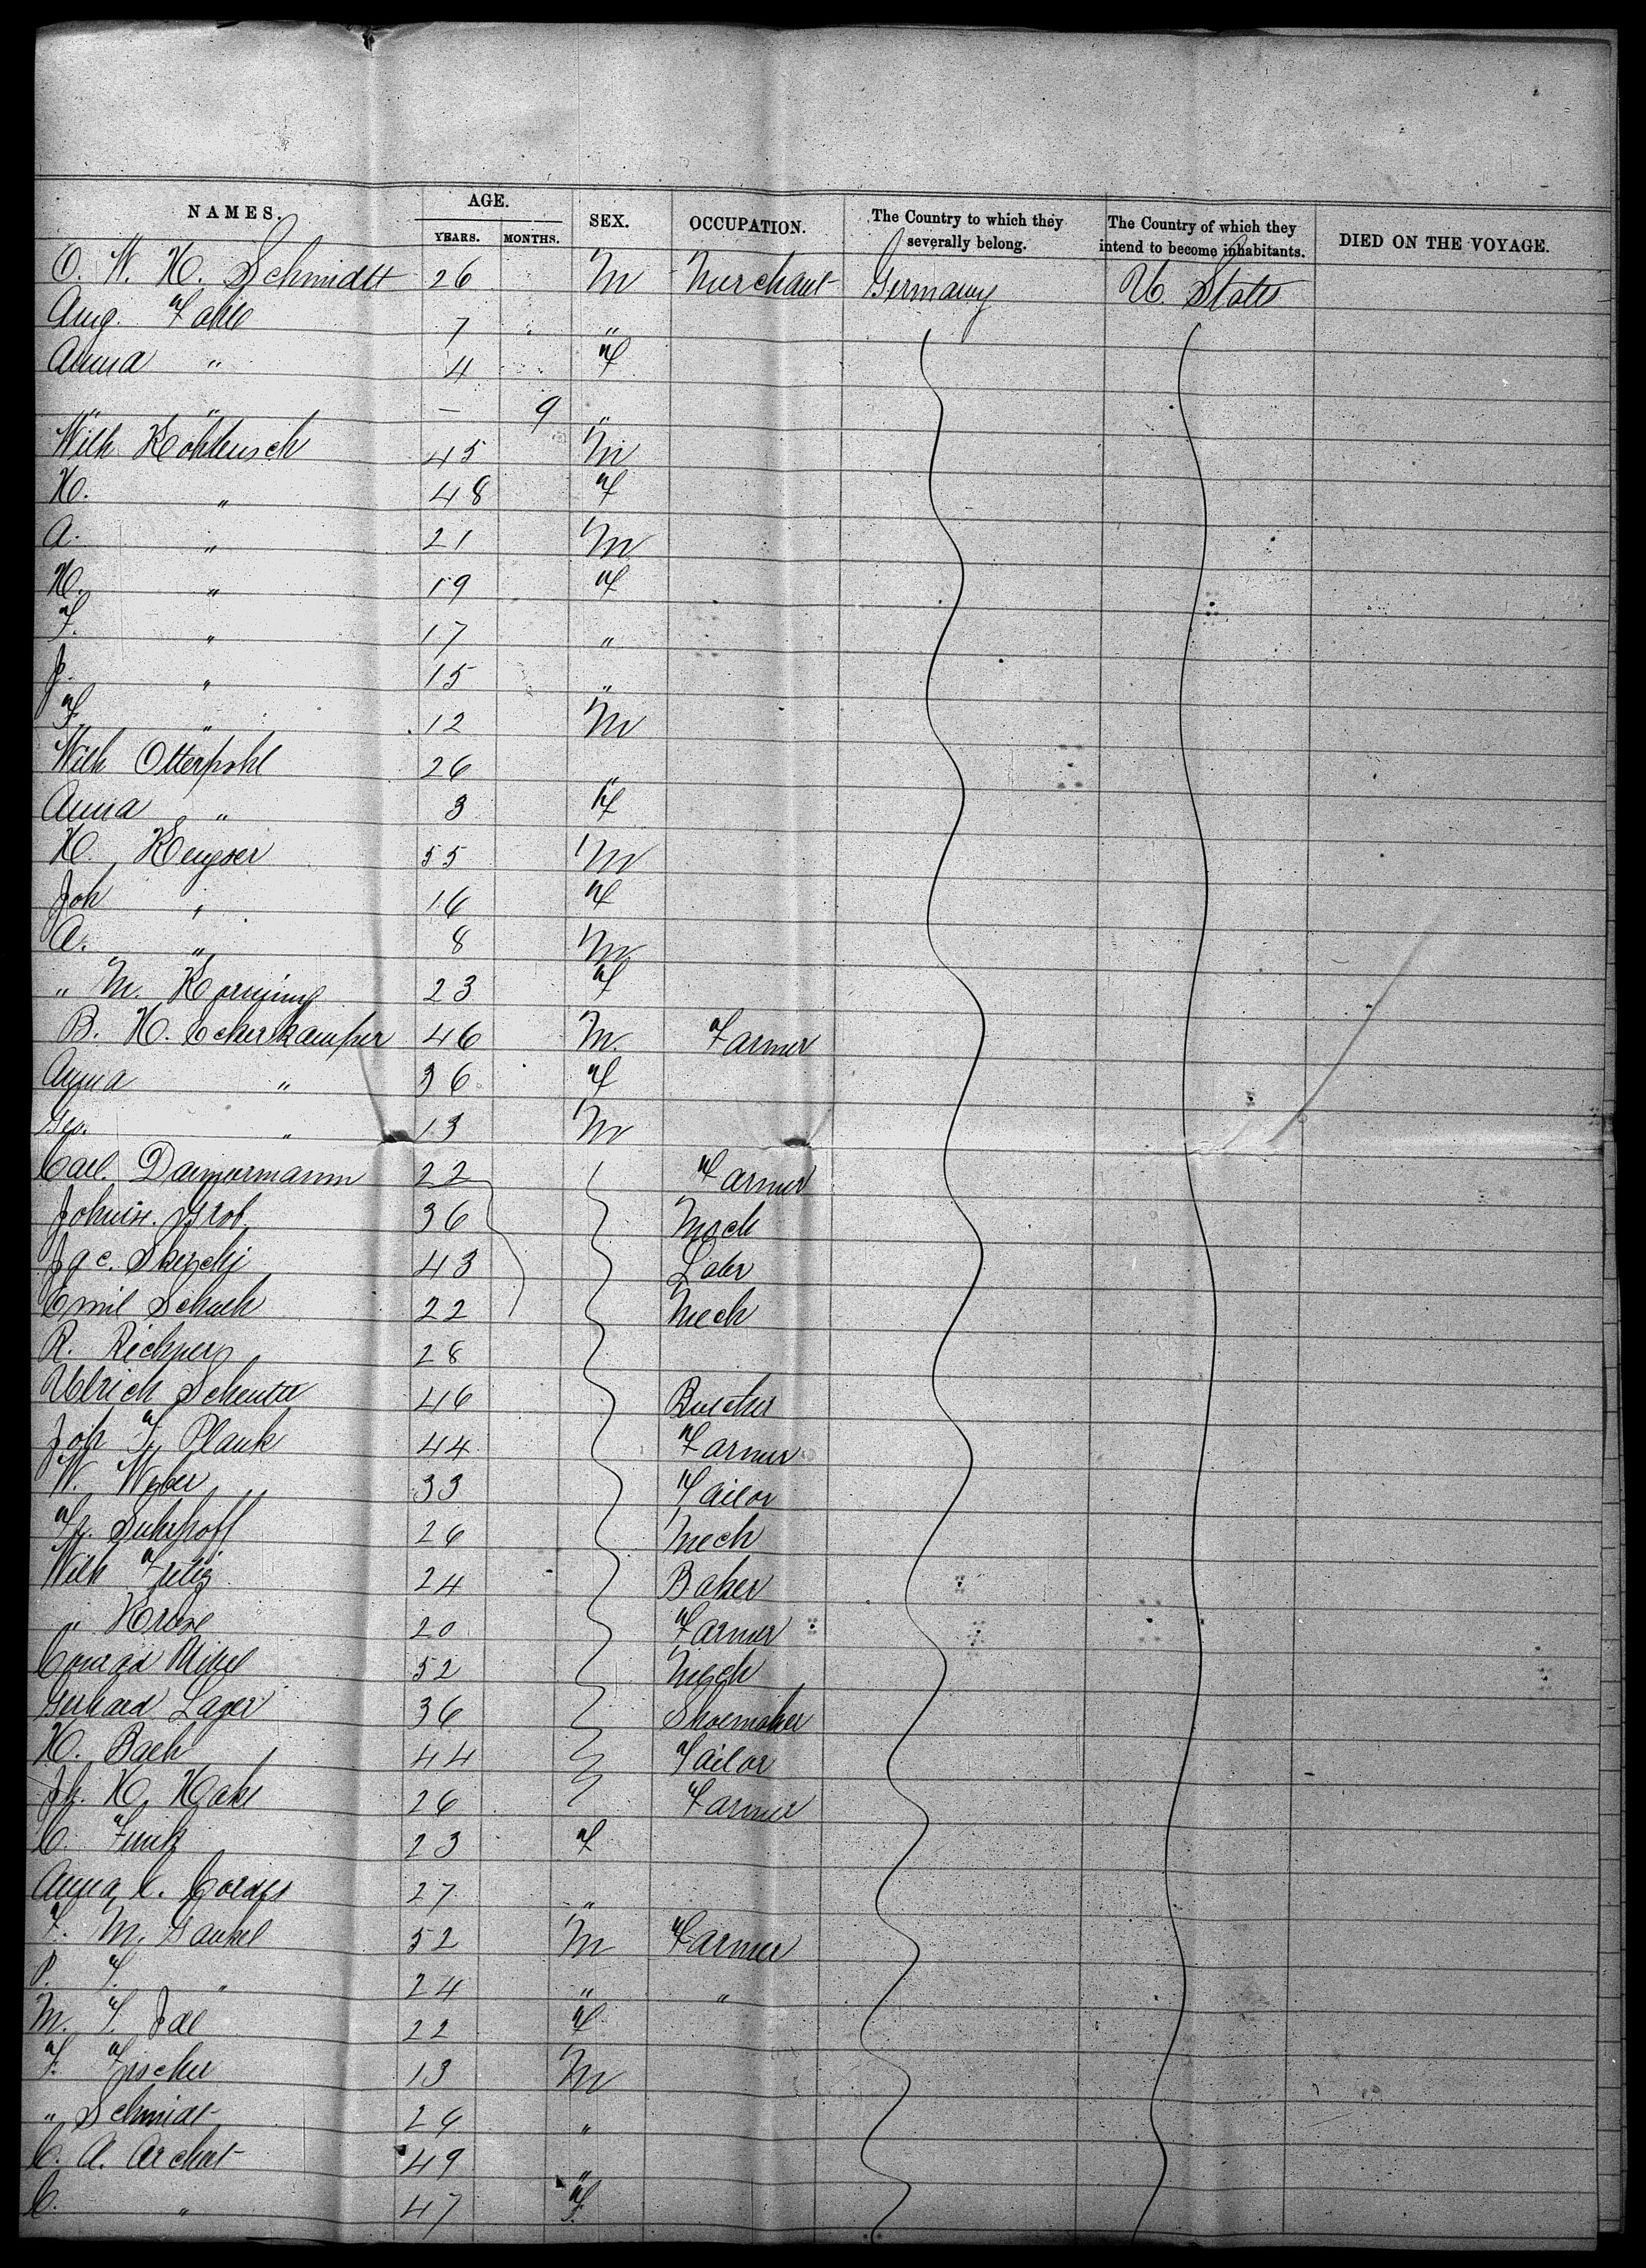 NAMES. AGE. SEX. OCCUPATION. The Country to which they severally belong. The Country of which they intend to become inhabitants. DIED ON THE VOYAGE.
YEARS. MONTHS.
O. W. H. Schmidtt 26 M Merchant Germany U. States
Aug. Fahle 7 "
Anna " 4 F
" " — 9 "
Wilh Kohlensch 45 M
H. " 48 F
A. " 21 M
H. " 19 F
F. " 17 "
J. " 15 "
F. " 12 M
Wilh Otterpohl 26 "
Anna " 3 F
H. Keyser 55 M
Joh " 16 F
A. " 8 M
" M. Korning 23 F
B. H. Eckerskamper 46 M. Farmer
Anna " 36 F
Geo. " 13 M
Carl. Dammermann 22 Farmer
Grob 36 Mech
Jac. 43 Labr
Emil Schuh 22 Mech
R. Richner 28
Ulrich 46 Butcher
Joh F. Plank 44 Farmer
W. Weber 33 Tailor
Fr. Suhrhoff 26 Mech
Wilh 24 Baker
" Kruse 20 Farmer
Conrad 52 Mech
Gerhard Lager 36 Shoemaker
H. Bach 44 Tailor
Jh. H. Hake 26 Farmer
C. Funk 23 F
Anna C. Cordes 27 "
F. M. Gaukel 52 M Farmer
P. F. " 24 " "
M. F. 22 F
F. Fischer 13 M
" Schmidt 26 "
C. A. 49 "
C. " 47 F.